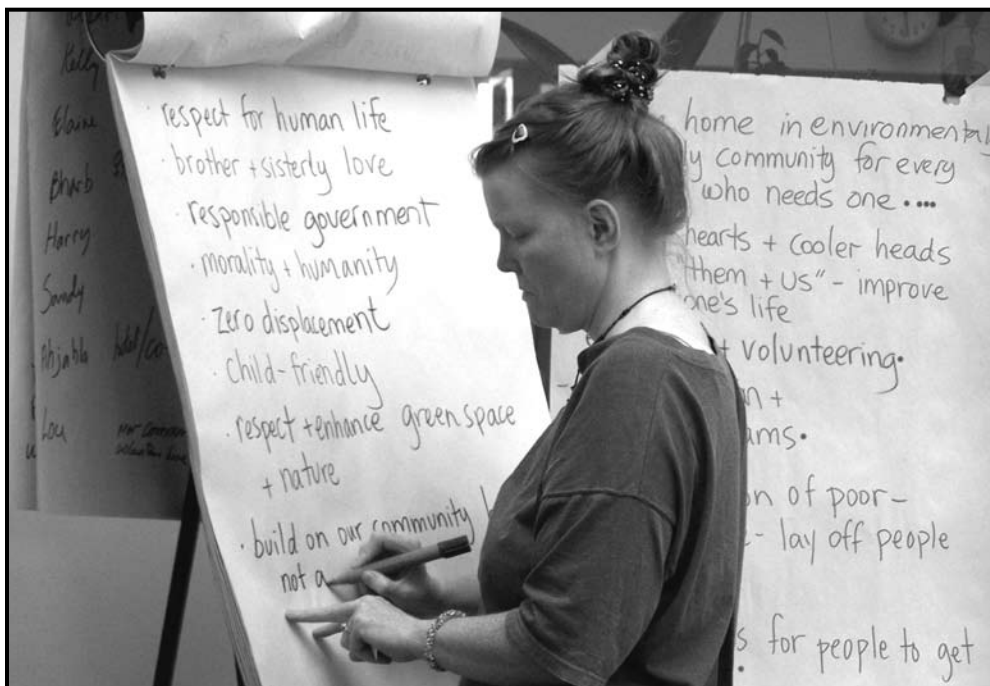 Kelly
Elaine
Bharb
Harry
Sandy
Lou
· respect for human life
· brother + sisterly love
· responsible government
· morality + humanity
· zero displacement
· child-friendly
· respect + enhance green space
+ nature
· build on our community
not a
home in environmental
community for every
who needs one ....
hearts + cooler heads
"them + us" - improve
one's life
+ volunteering.
+
on of poor-
- lay off people
for people to get